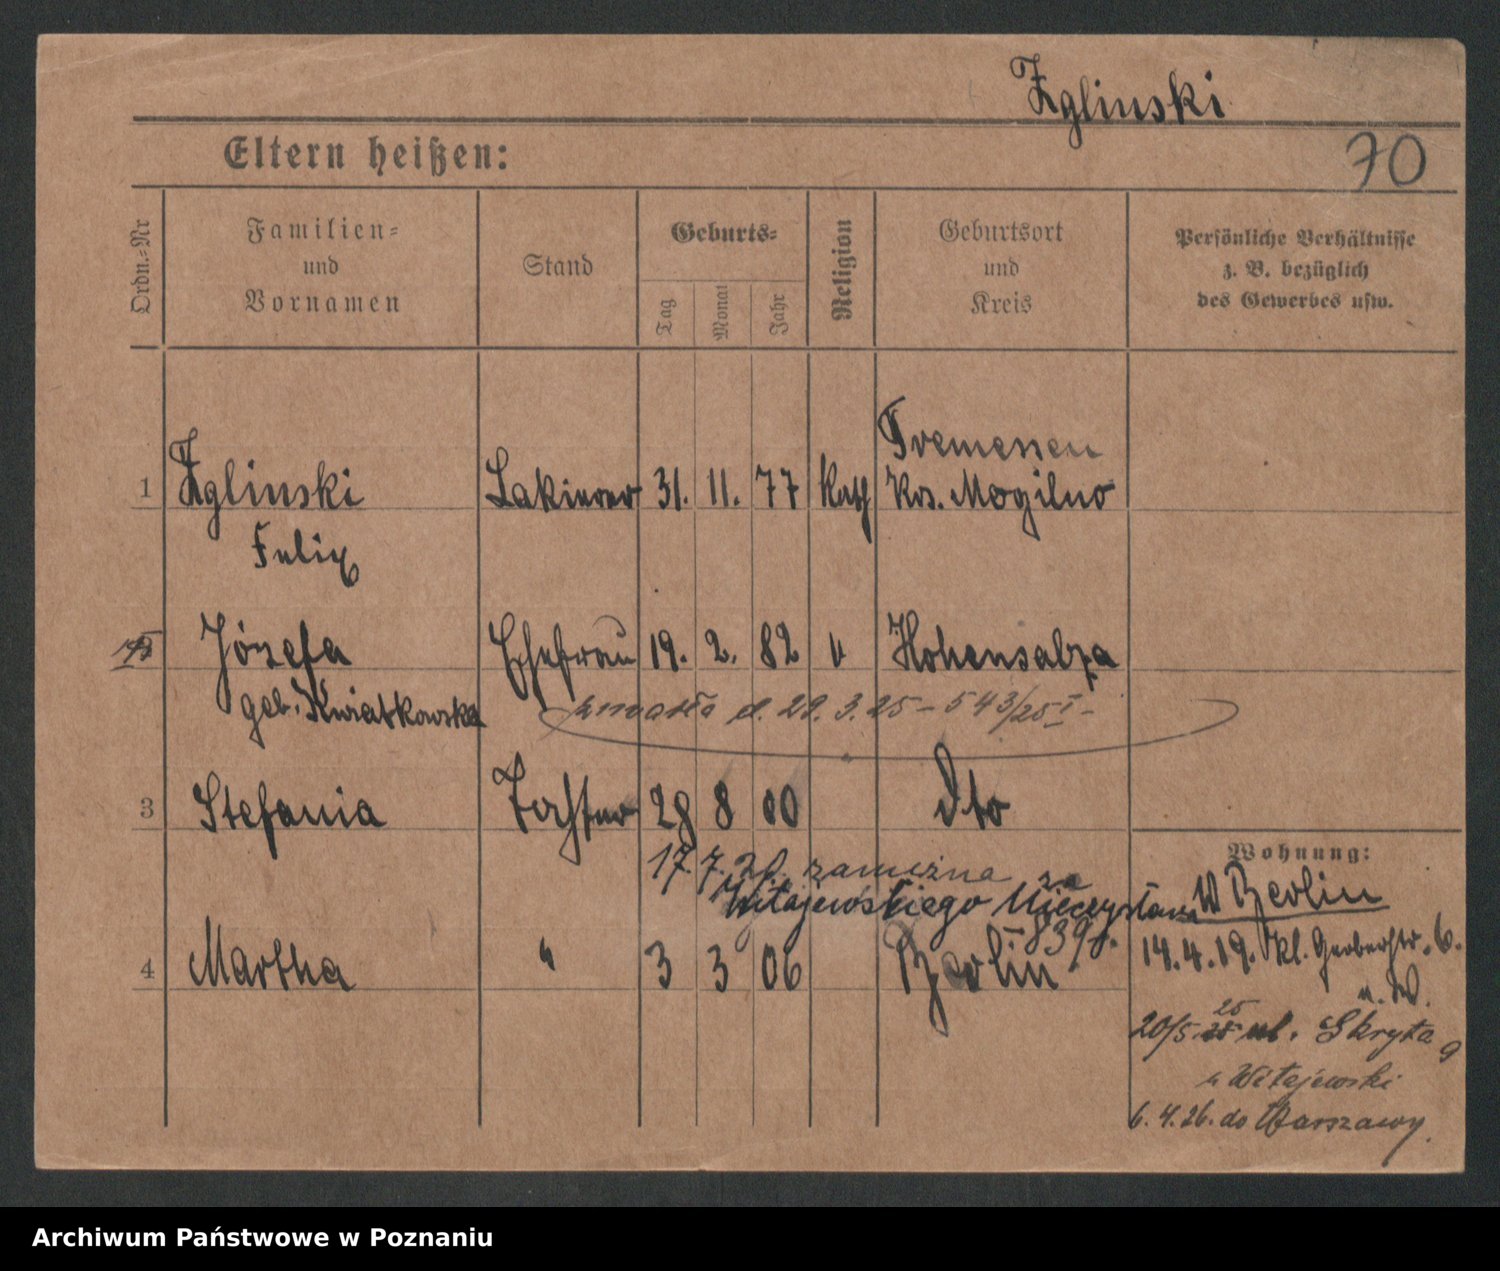 Zglinski
Eltern heißen:
70
Ordn.=Nr
Familien=
und
Vornamen
Stand
Geburts=
Tag
Monat
Jahr
Religion
Geburtsort
und
Kreis
Persönliche Verhältnisse
z. B. bezüglich
des Gewerbes usw.
Tremessen
1 Zglinski Lakierer 31. 11. 77 Kath Krs. Mogilno
Felix
Józefa Ehefrau 19. 2. 82 " Hohensalza
geb. Kwiatkowska
zmarła d. 29. 3. 25 – 543/25 I –
3 Stefania Tochter 28 8 00 dto
Wohnung:
17. 7. 20. zamężna za
Witajewskiego Mieczysława
W Berlin
I 839
4 Martha " 3 3 06 Berlin
14. 4. 19. Kl. Gerberstr. 6.
u. W.
20/5 25 ul. Skryta 9
u Witajewski
6. 4. 26. do Warszawy.
Archiwum Państwowe w Poznaniu